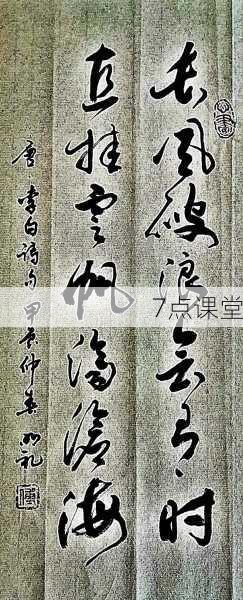 长风破浪会有时
直挂云帆济沧海
唐李白诗句甲辰仲春
7点课堂